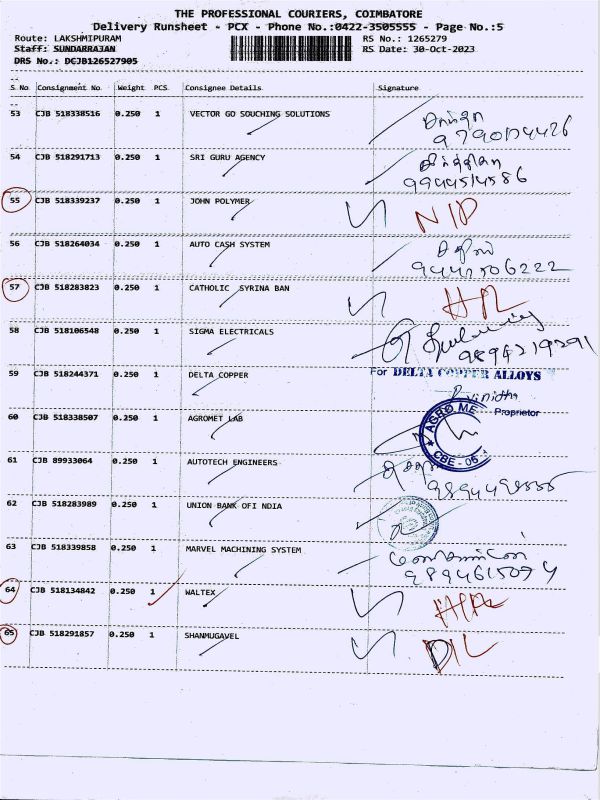 THE PROFESSIONAL COURIERS, COIMBATORE
Delivery Runsheet - PCX - Phone No.:0422-3505555 - Page No.:5
Route: LAKSHMIPURAM RS No.: 1265279
Staff: SUNDARRAJAN RS Date: 30-Oct-2023
DRS No.: DCJB126527905
S.No Consignment No Weight PCS Consignee Details Signature
53 CJB 518338516 0.250 1 VECTOR GO SOUCHING SOLUTIONS
54 CJB 518291713 0.250 1 SRI GURU AGENCY
9944514586
55 CJB 518339237 0.250 1 JOHN POLYMER N/D
56 CJB 518264034 0.250 1 AUTO CASH SYSTEM
57 CJB 518283823 0.250 1 CATHOLIC SYRINA BAN
58 CJB 518106548 0.250 1 SIGMA ELECTRICALS
For DELTA COPPER ALLOYS
59 CJB 518244371 0.250 1 DELTA COPPER
Vinidha
Proprietor
60 CJB 518338507 0.250 1 AGROMET LAB
AGRO ME
CBE - 05
61 CJB 89933064 0.250 1 AUTOTECH ENGINEERS
62 CJB 518283989 0.250 1 UNION BANK OFI NDIA
63 CJB 518339858 0.250 1 MARVEL MACHINING SYSTEM
9894615094
64 CJB 518134842 0.250 1 WALTEX
65 CJB 518291857 0.250 1 SHANMUGAVEL D/L